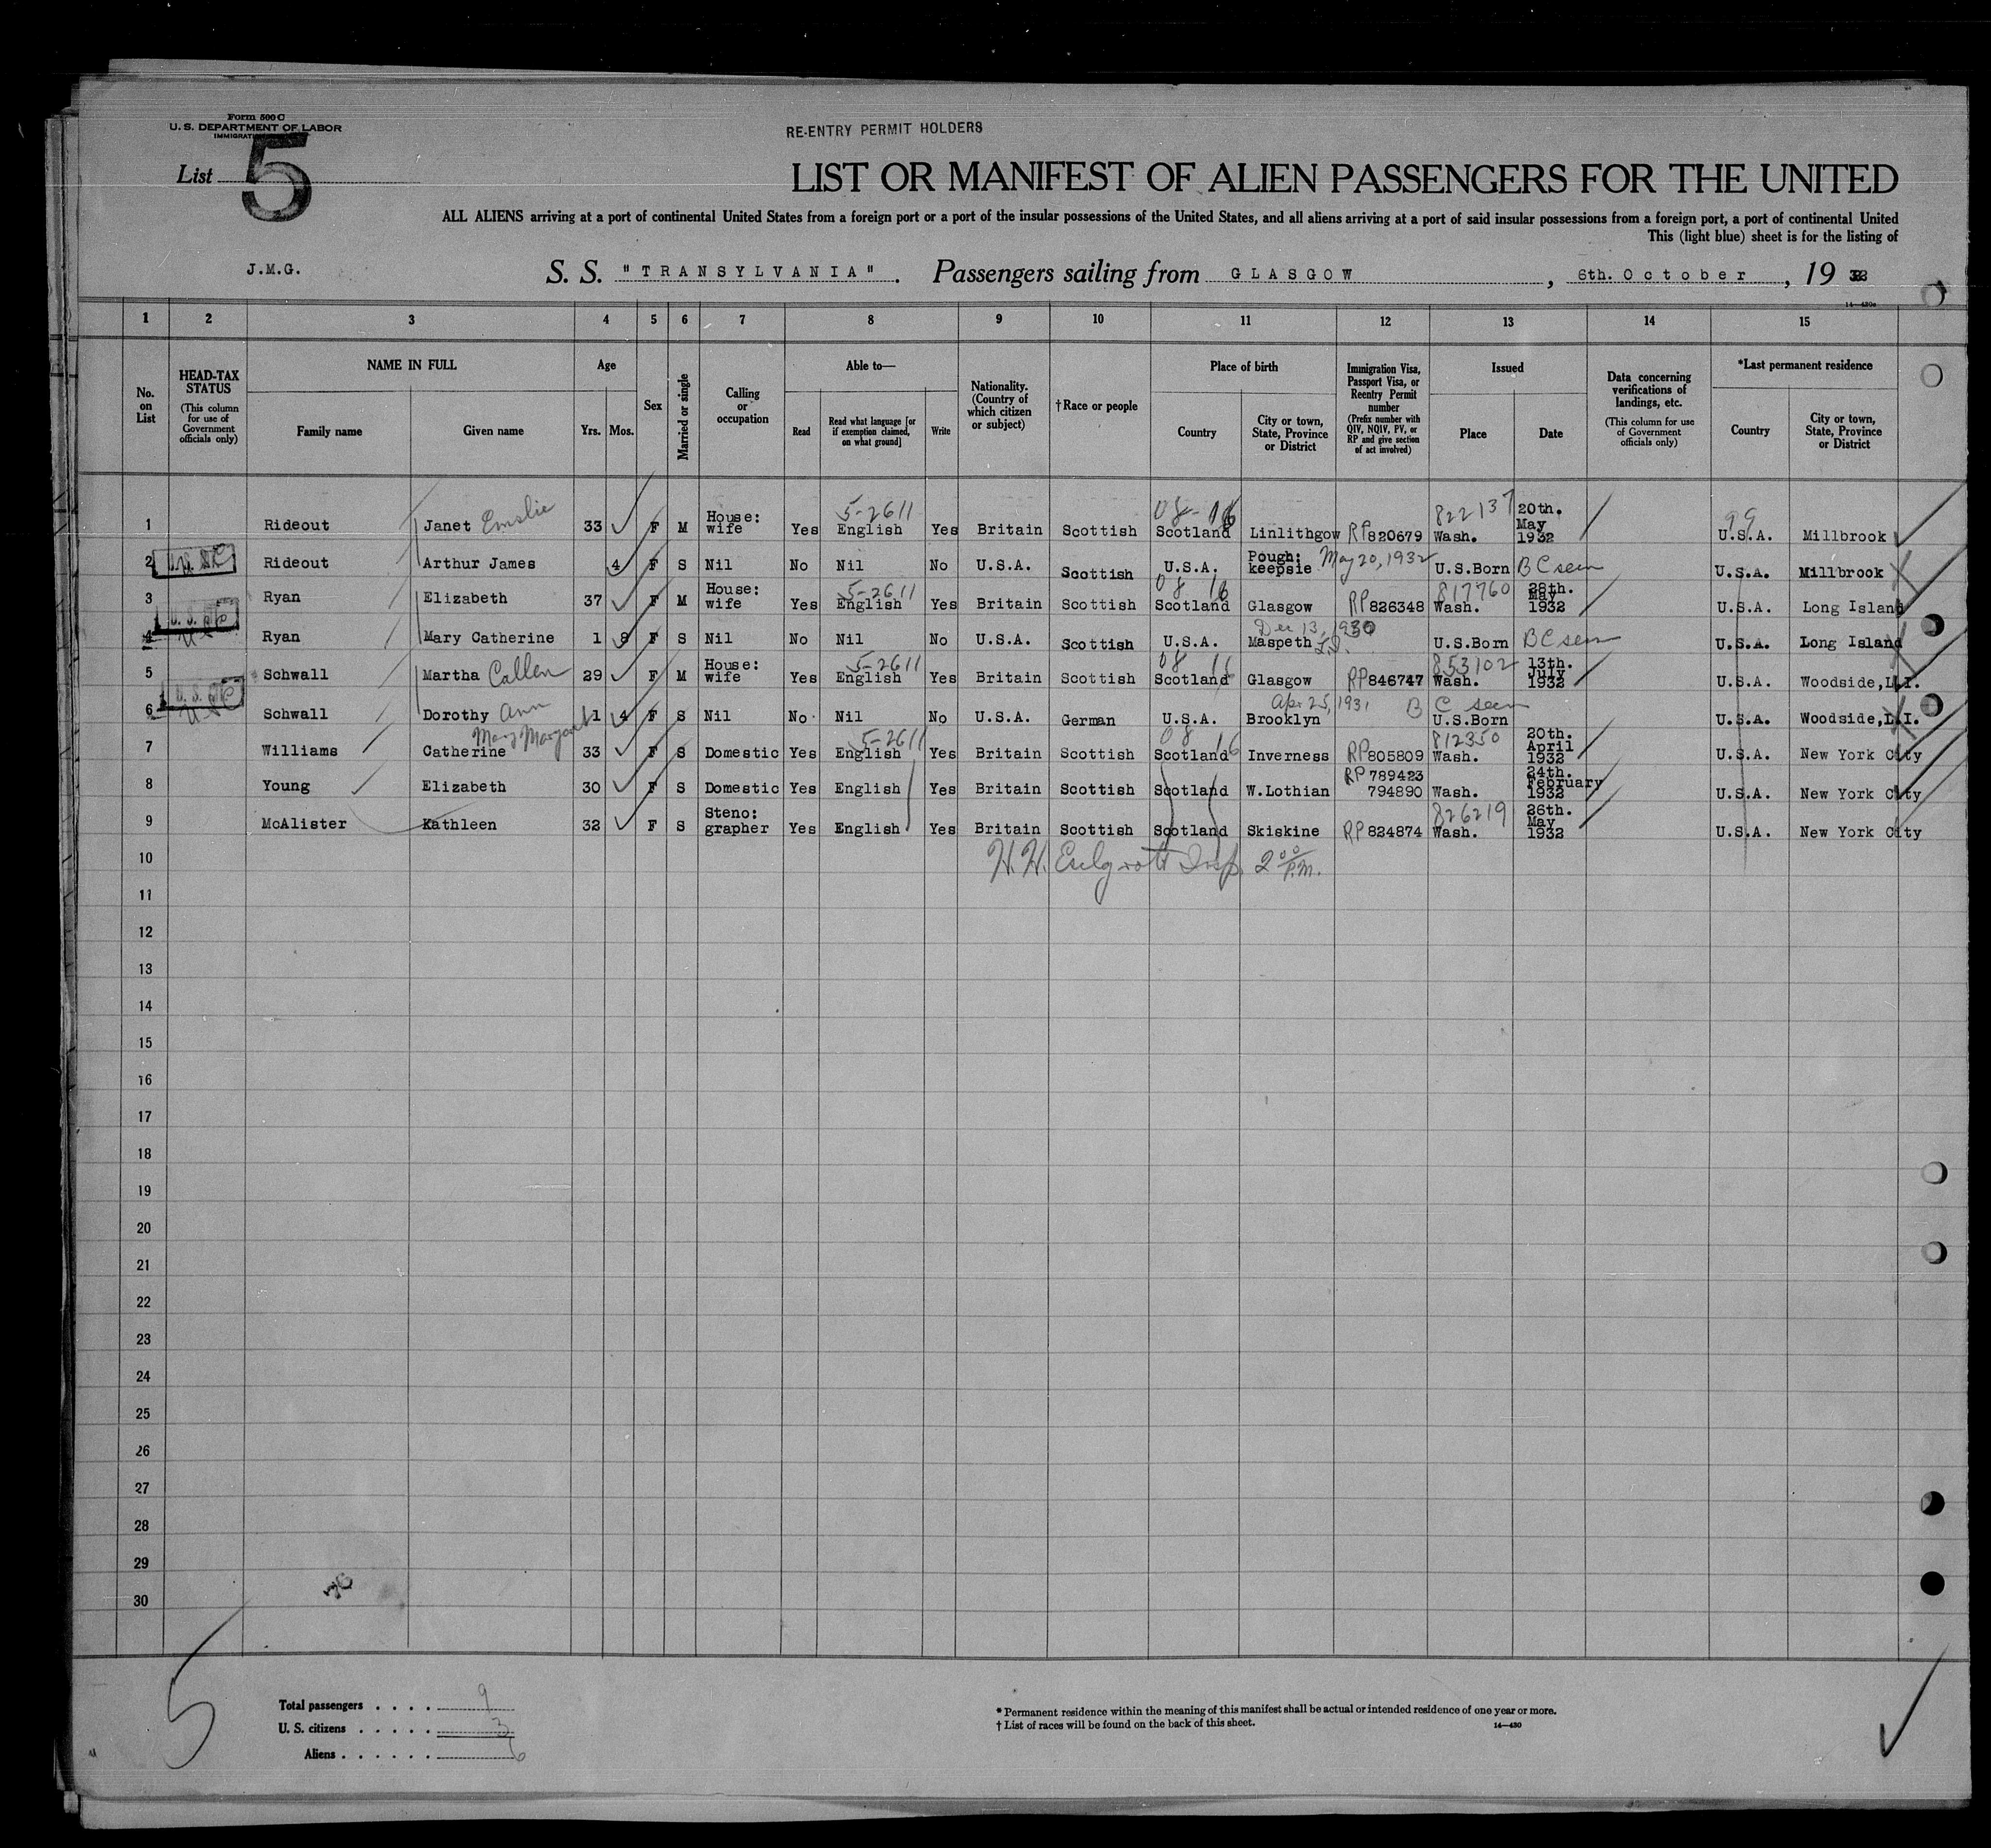 Form 500 C
U. S. DEPARTMENT OF LABOR
RE-ENTRY PERMIT HOLDERS
List 5
LIST OR MANIFEST OF ALIEN PASSENGERS FOR THE UNITED
ALL ALIENS arriving at a port of continental United States from a foreign port or a port of the insular possessions of the United States, and all aliens arriving at a port of said insular possessions from a foreign port, a port of continental United
This (light blue) sheet is for the listing of
J.M.G. S. S. "TRANSYLVANIA". Passengers sailing from GLASGOW, 6th. October, 19
1 2 3 4 5 6 7 8 9 10 11 12 13 14 15
No. on List
HEAD-TAX STATUS (This column for use of Government officials only)
NAME IN FULL Family name Given name
Age Yrs. Mos.
Sex
Married or single
Calling or occupation
Able to— Read Read what language [or if exemption claimed, on what ground] Write
Nationality. (Country of which citizen or subject)
†Race or people
Place of birth Country City or town, State, Province or District
Immigration Visa, Passport Visa, or Reentry Permit number (Prefix number with QIV, NQIV, PV, or RP and give section of act involved)
Issued Place Date
Data concerning verifications of landings, etc. (This column for use of Government officials only)
*Last permanent residence Country City or town, State, Province or District
1 Rideout Janet Emslie 33 F M House: wife Yes 5-2611 English Yes Britain Scottish 08-16 Scotland Linlithgow RP 820679 822137 Wash. 20th. May 1932 99 U.S.A. Millbrook
2 USC Rideout Arthur James 4 F S Nil No Nil No U.S.A. Scottish U.S.A. Pough: keepsie May 20, 1932 U.S.Born BC seen U.S.A. Millbrook
3 Ryan Elizabeth 37 F M House: wife Yes 5-2611 English Yes Britain Scottish 08 16 Scotland Glasgow RP 826348 817760 Wash. 28th. May 1932 U.S.A. Long Island
4 USC Ryan Mary Catherine 1 8 F S Nil No Nil No U.S.A. Scottish U.S.A. Dec 13, 1930 Maspeth L.I. U.S.Born BC seen U.S.A. Long Island
5 Schwall Martha Callen 29 F M House: wife Yes 5-2611 English Yes Britain Scottish 08 16 Scotland Glasgow RP 846747 853102 Wash. 13th. July 1932 U.S.A. Woodside, L.I.
6 USC Schwall Dorothy Ann 1 4 F S Nil No Nil No U.S.A. German U.S.A. Apr 25, 1931 Brooklyn BC seen U.S.Born U.S.A. Woodside, L.I.
7 Williams Mary Margaret Catherine 33 F S Domestic Yes 5-2611 English Yes Britain Scottish 08 16 Scotland Inverness RP 805809 812350 Wash. 20th. April 1932 U.S.A. New York City
8 Young Elizabeth 30 F S Domestic Yes English Yes Britain Scottish Scotland W.Lothian RP 789423 794890 Wash. 24th. February 1932 U.S.A. New York City
9 McAlister Kathleen 32 F S Steno: grapher Yes English Yes Britain Scottish Scotland Skiskine RP 824874 826219 Wash. 26th. May 1932 U.S.A. New York City
10 H.H. Insp. 2 00 P.M.
11
12
13
14
15
16
17
18
19
20
21
22
23
24
25
26
27
28
29
30
5
Total passengers . . . . 9
U. S. citizens . . . . . 3
Aliens . . . . . . 6
* Permanent residence within the meaning of this manifest shall be actual or intended residence of one year or more.
† List of races will be found on the back of this sheet. 14—430